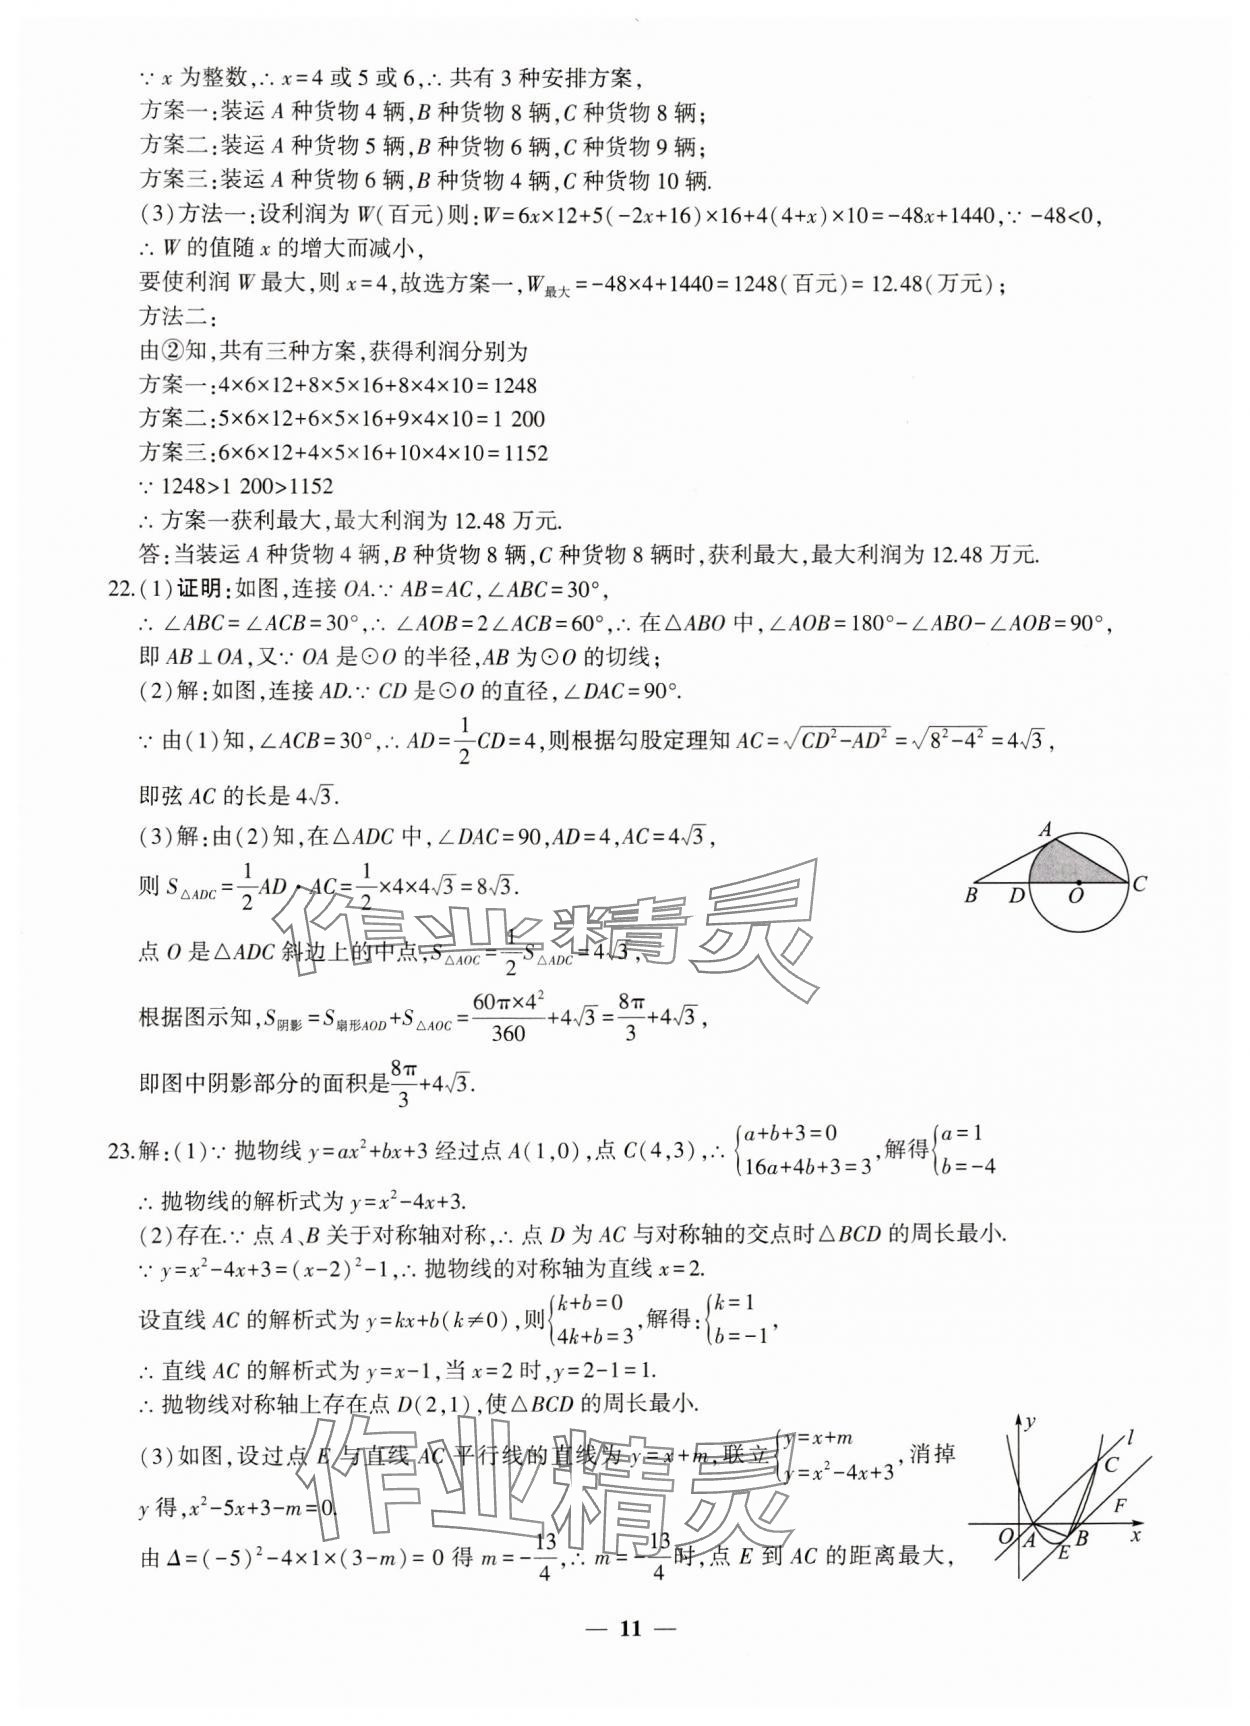 ∵ x 为整数,∴ x=4 或 5 或 6,∴ 共有 3 种安排方案,
方案一:装运 A 种货物 4 辆,B 种货物 8 辆,C 种货物 8 辆;
方案二:装运 A 种货物 5 辆,B 种货物 6 辆,C 种货物 9 辆;
方案三:装运 A 种货物 6 辆,B 种货物 4 辆,C 种货物 10 辆.
(3)方法一:设利润为 W(百元)则:W=6x×12+5(-2x+16)×16+4(4+x)×10=-48x+1440,∵ -48<0,
∴ W 的值随 x 的增大而减小,
要使利润 W 最大,则 x=4,故选方案一,W最大=-48×4+1440=1248(百元)= 12.48(万元);
方法二:
由②知,共有三种方案,获得利润分别为
方案一:4×6×12+8×5×16+8×4×10=1248
方案二:5×6×12+6×5×16+9×4×10=1 200
方案三:6×6×12+4×5×16+10×4×10=1152
∵ 1248>1 200>1152
∴ 方案一获利最大,最大利润为 12.48 万元.
答:当装运 A 种货物 4 辆,B 种货物 8 辆,C 种货物 8 辆时,获利最大,最大利润为 12.48 万元.
22.(1)证明:如图,连接 OA.∵ AB=AC,∠ABC=30°,
∴ ∠ABC=∠ACB=30°,∴ ∠AOB=2∠ACB=60°,∴ 在△ABO 中,∠AOB=180°-∠ABO-∠AOB=90°,
即 AB⊥OA,又∵ OA 是⊙O 的半径,AB 为⊙O 的切线;
(2)解:如图,连接 AD.∵ CD 是⊙O 的直径,∠DAC=90°.
∵ 由(1)知,∠ACB=30°,∴ AD=1/2CD=4,则根据勾股定理知 AC=√(CD²-AD²)=√(8²-4²)=4√3,
即弦 AC 的长是 4√3.
(3)解:由(2)知,在△ADC 中,∠DAC=90,AD=4,AC=4√3,
则 S△ADC=1/2AD·AC=1/2×4×4√3=8√3.
点 O 是△ADC 斜边上的中点,S△AOC=1/2S△ADC=4√3,
根据图示知,S阴影=S扇形AOD+S△AOC=60π×4²/360+4√3=8π/3+4√3,
即图中阴影部分的面积是8π/3+4√3.
A
B D O C
23.解:(1)∵ 抛物线 y=ax²+bx+3 经过点 A(1,0),点 C(4,3),∴ {a+b+3=0 16a+4b+3=3,解得{a=1 b=-4
∴ 抛物线的解析式为 y=x²-4x+3.
(2)存在.∵ 点 A、B 关于对称轴对称,∴ 点 D 为 AC 与对称轴的交点时△BCD 的周长最小.
∵ y=x²-4x+3=(x-2)²-1,∴ 抛物线的对称轴为直线 x=2.
设直线 AC 的解析式为 y=kx+b(k≠0),则{k+b=0 4k+b=3,解得:{k=1 b=-1,
∴ 直线 AC 的解析式为 y=x-1,当 x=2 时,y=2-1=1.
∴ 抛物线对称轴上存在点 D(2,1),使△BCD 的周长最小.
(3)如图,设过点 E 与直线 AC 平行线的直线为 y=x+m,联立{y=x+m y=x²-4x+3,消掉
y 得,x²-5x+3-m=0.
由 Δ=(-5)²-4×1×(3-m)=0 得 m=-13/4,∴ m=-13/4时,点 E 到 AC 的距离最大,
y l C F O A E B x
— 11 —
作业精灵
作业精灵